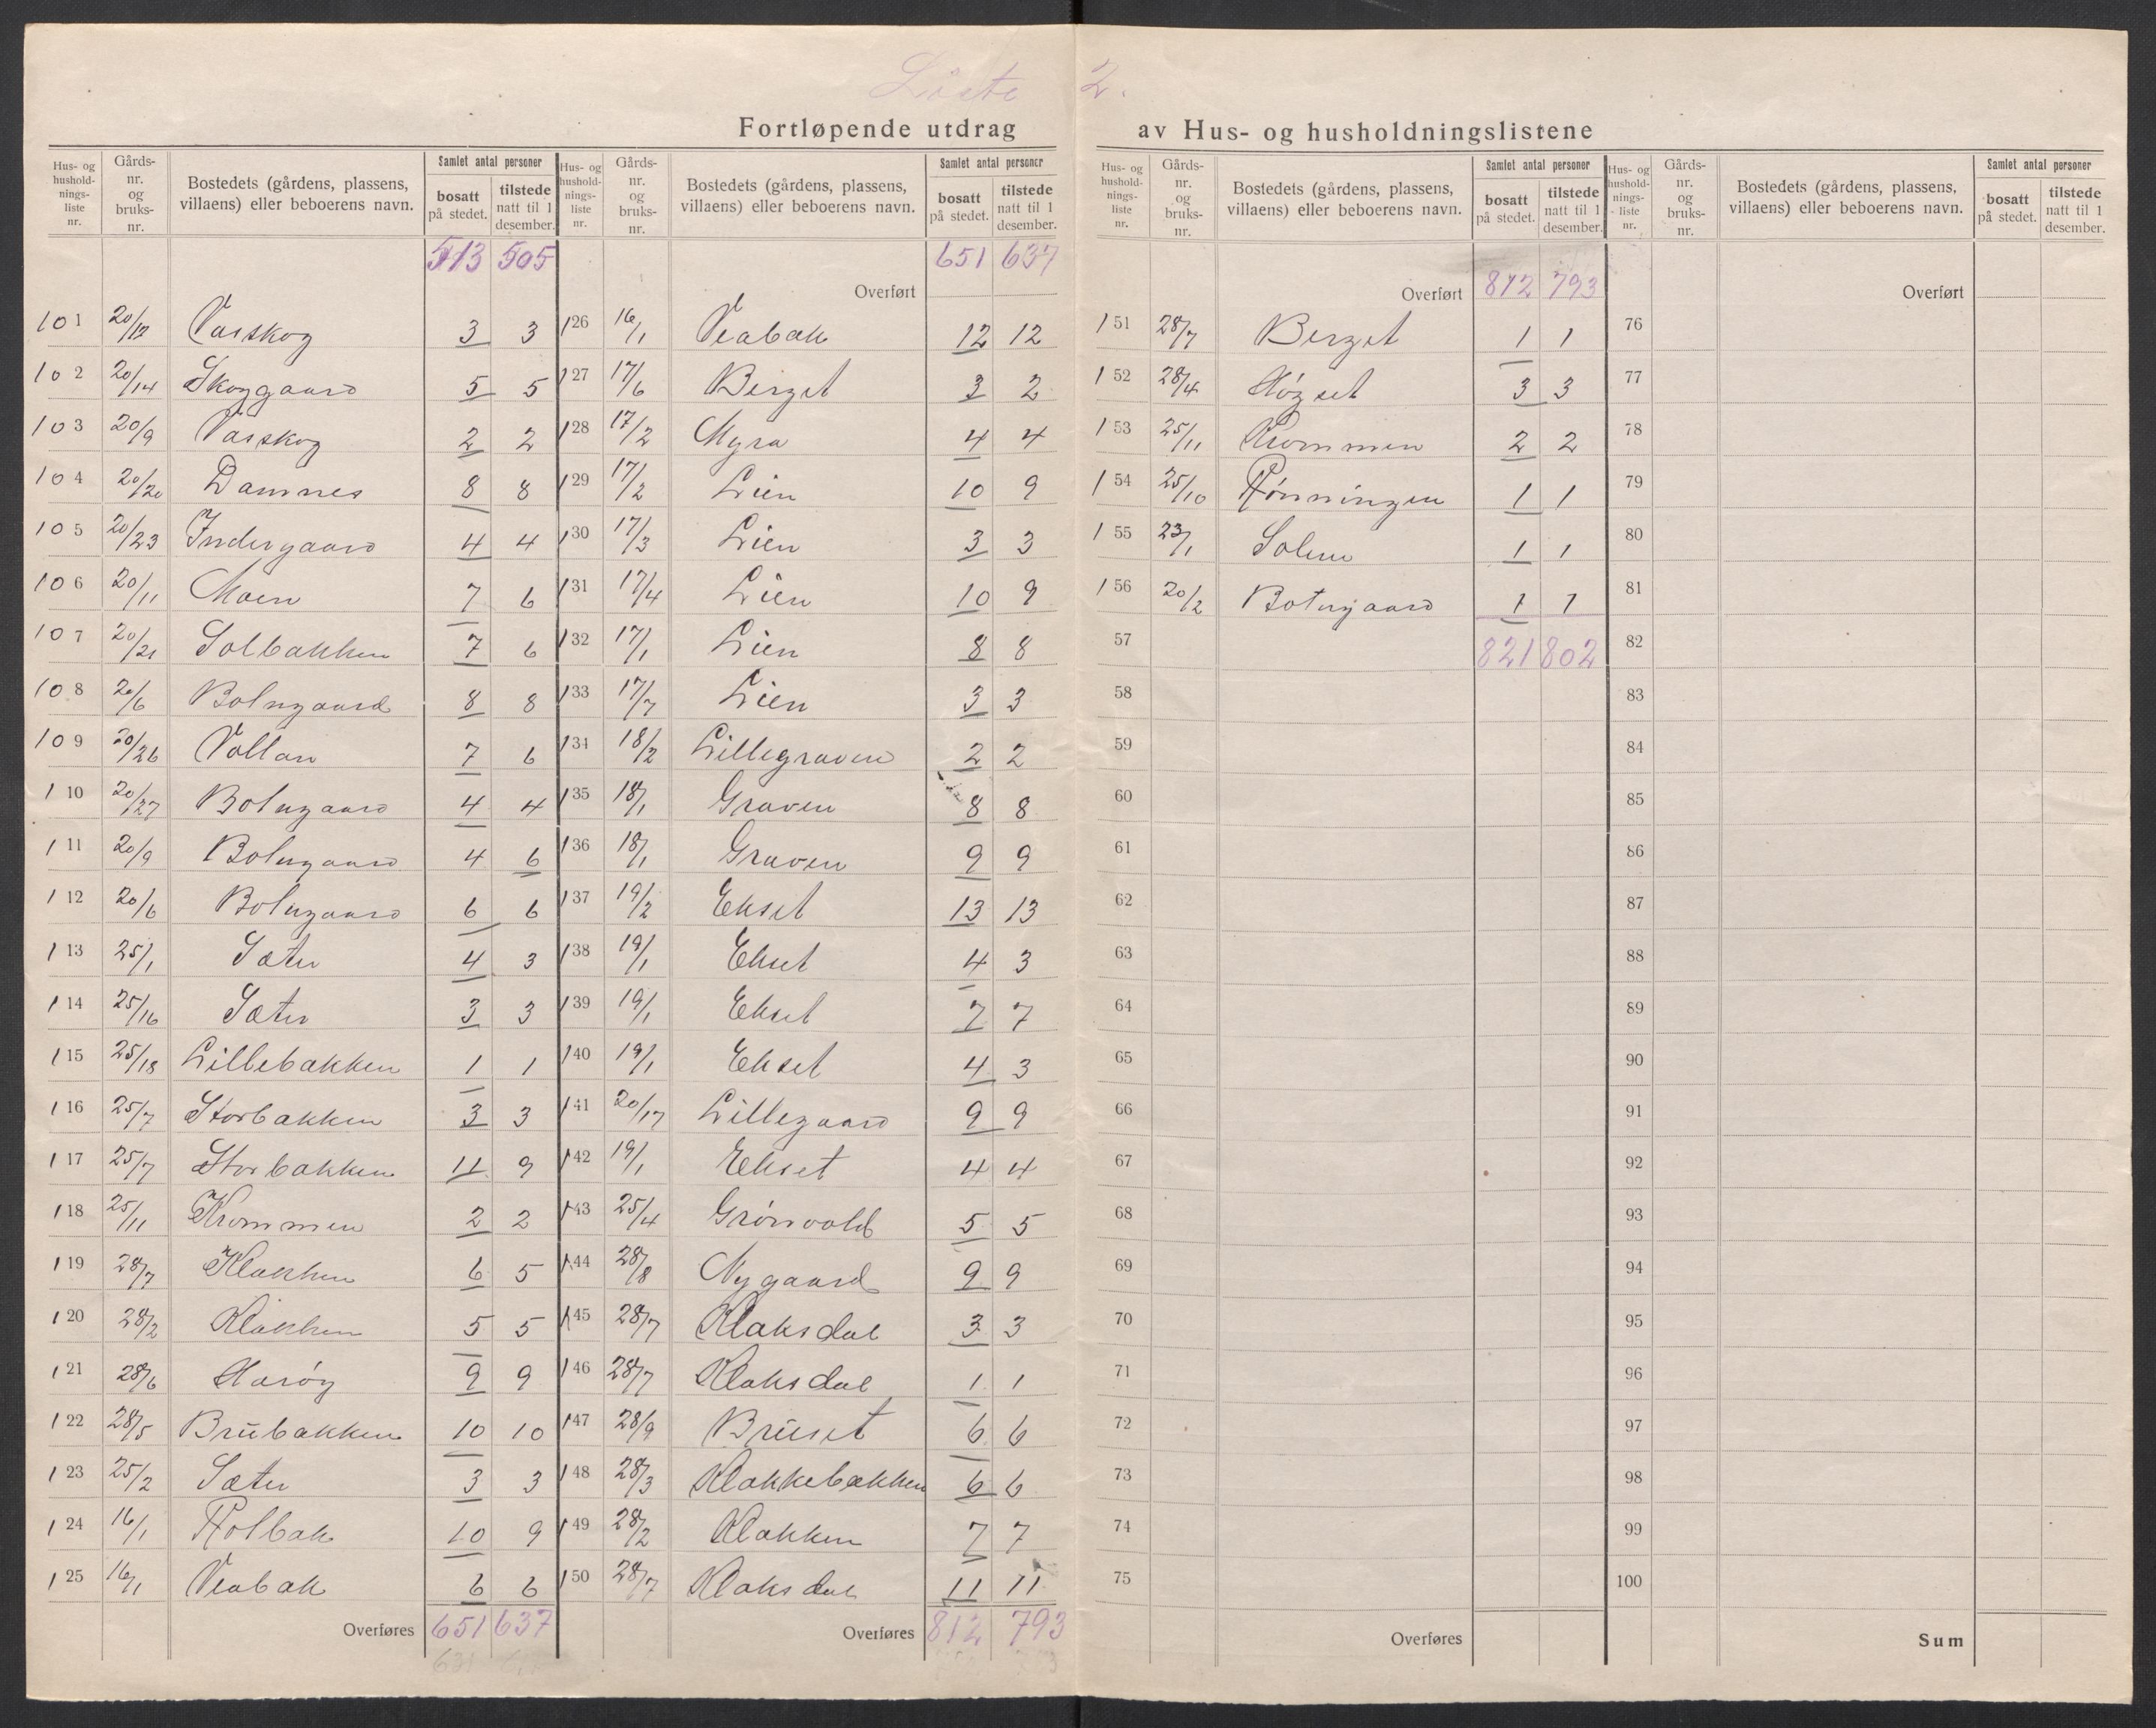 Liste 2.
Fortløpende utdrag av Hus- og husholdningslistene
Hus- og husholdnings-liste nr. | Gårds-nr. og bruks-nr. | Bostedets (gårdens, plassens, villaens) eller beboerens navn. | Samlet antal personer bosatt på stedet. | tilstede natt til 1 desember.
513 505
101 20/12 Vasskog 3 3
102 20/14 Skoggaard 5 5
103 20/9 Vasskog 2 2
104 20/20 Damnes 8 8
105 20/23 Indergaard 4 4
106 20/11 Moen 7 6
107 20/21 Solbakken 7 6
108 20/6 Botngaard 8 8
109 20/26 Vollan 7 6
110 20/27 Botngaard 4 4
111 20/9 Botngaard 4 6
112 20/6 Botngaard 6 6
113 25/1 Sæter 4 3
114 25/16 Sæter 3 3
115 25/18 Lillebakken 1 1
116 25/7 Storbakken 3 3
117 25/7 Storbakken 11 9
118 25/11 Krommen 2 2
119 28/7 Klakken 6 5
120 28/2 Klakken 5 5
121 28/6 Harøy 9 9
122 28/5 Brubakken 10 10
123 25/2 Sæter 3 3
124 16/1 Holbak 10 9
125 16/1 Veabak 6 6
Overføres 651 637
Hus- og husholdnings-liste nr. | Gårds-nr. og bruks-nr. | Bostedets (gårdens, plassens, villaens) eller beboerens navn. | Samlet antal personer bosatt på stedet. | tilstede natt til 1 desember.
Overført 651 637
126 16/1 Veabak 12 12
127 17/6 Berget 3 2
128 17/2 Myra 4 4
129 17/2 Lien 10 9
130 17/3 Lien 3 3
131 17/4 Lien 10 9
132 17/1 Lien 8 8
133 17/7 Lien 3 3
134 18/2 Lillegraven 2 2
135 18/1 Graven 8 8
136 18/1 Graven 9 9
137 19/2 Ekset 13 13
138 19/1 Ekset 4 3
139 19/1 Ekset 7 7
140 19/1 Ekset 4 3
141 20/17 Lillegaard 9 9
142 19/1 Ekset 4 4
143 25/4 Grønvold 5 5
144 28/8 Nygaard 9 9
145 28/7 Klaksdal 3 3
146 28/7 Klaksdal 1 1
147 28/9 Bruset 6 6
148 28/3 Klakkebakken 6 6
149 28/2 Klakken 7 7
150 28/7 Klaksdal 11 11
Overføres 812 793
Hus- og husholdnings-liste nr. | Gårds-nr. og bruks-nr. | Bostedets (gårdens, plassens, villaens) eller beboerens navn. | Samlet antal personer bosatt på stedet. | tilstede natt til 1 desember.
Overført 812 793
151 28/7 Berget 1 1
152 28/4 Høgset 3 3
153 25/11 Krommen 2 2
154 25/10 Rønningen 1 1
155 23/1 Solem 1 1
156 20/2 Botngaard 1 1
57 821 802
58
59
60
61
62
63
64
65
66
67
68
69
70
71
72
73
74
75
Overføres
Hus- og husholdnings-liste nr. | Gårds-nr. og bruks-nr. | Bostedets (gårdens, plassens, villaens) eller beboerens navn. | Samlet antal personer bosatt på stedet. | tilstede natt til 1 desember.
Overført
76
77
78
79
80
81
82
83
84
85
86
87
88
89
90
91
92
93
94
95
96
97
98
99
100
Sum